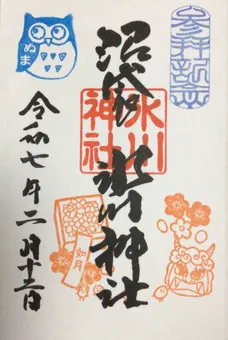 参拝記念
沼袋 氷川神社
氷川
神社
ぬま
令和七年二月十三日
如月